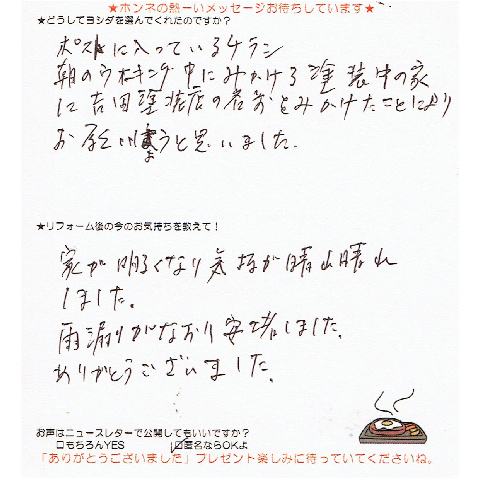 ★ホンネの熱ーいメッセージお待ちしています★
★どうしてヨシダを選んでくれたのですか？
ポストに入っているチラシ
朝のウォーキング中にみかける塗装中の家
に吉田塗装店の名前をみかけたことにより
お願いしようと思いました.
★リフォーム後の今のお気持ちを教えて！
家が明るくなり気持が晴れ晴れ
しました。
雨漏りがなおり安堵しました.
ありがとうございました.
お声はニュースレターで公開してもいいですか？
□もちろんYES　□匿名ならOKよ
「ありがとうございました」プレゼント楽しみに待っていてくださいね。